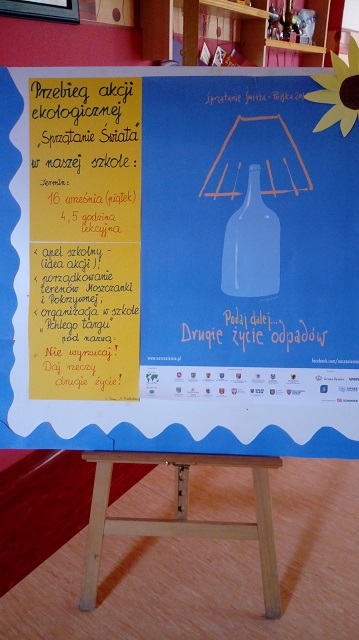 Przebieg akcji
ekologicznej
„Sprzątanie Świata"
w naszej szkole:
Termin:
16 września (piątek)
4, 5 godzina
lekcyjna
< apel szkolny -
(idea akcji),
< porządkowanie
terenów Moszczanki
i Pokrzywnej;
< organizacja w szkole
"Pchlego targu"
pod nazwą:
„Nie wyrzucaj!
Daj rzeczy
drugie życie!
Sprzątanie Świata - Polska
Podaj dalej...
Drugie życie odpadów